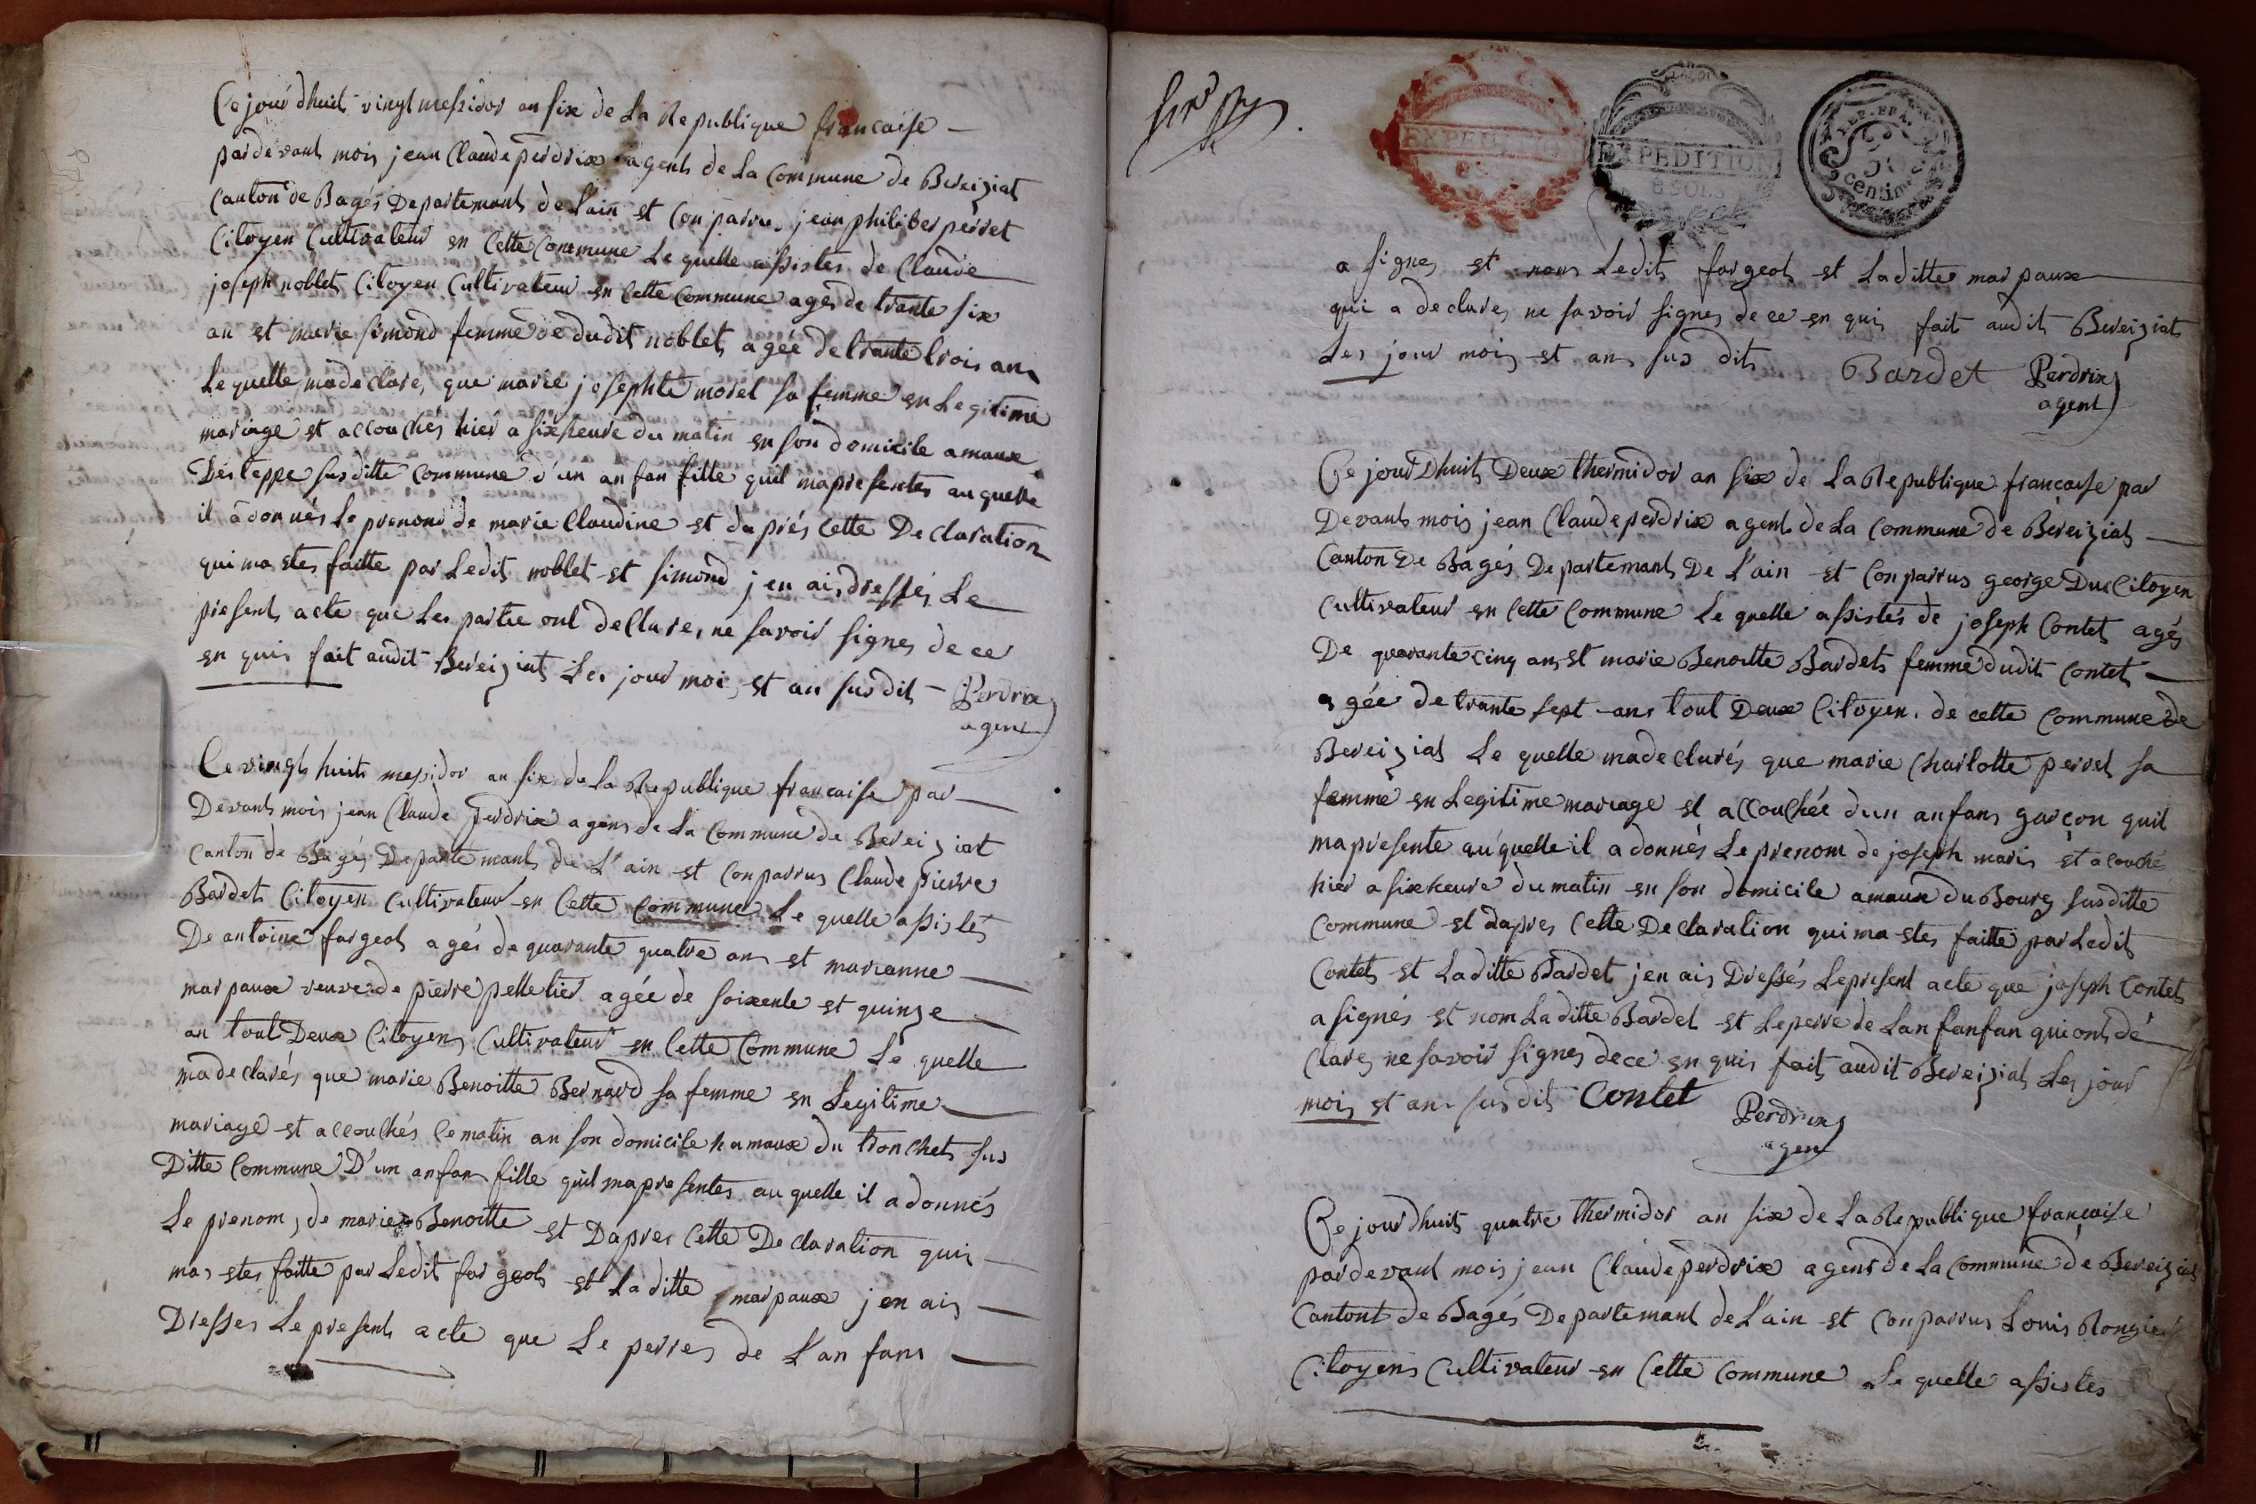 Ce jourdhuit vingt messidor an six de la Republique francaise
pardevant mois jean Claude perdrix agent de la commune de Bereiziat
Canton de Bagés Departemant de Lain est Conparru jean philiber perret
Citoyen Cultivateur en Cette Commune Le quelle assistes de Claude
joseph noblet Citoyen Cultivateur en Cette Commune ages de trante six
an et marie simond femme de dudit noblet agée de trante trois ans
Lequelle ma declares que marie josephte morel sa femme en Legitime
mariage est accouchés hier a six heure du matin en son domicile amaux
Desteppe susditte Commune d'un anfan fille quil mapresentes auquelle
il a donnés Le prenom de marie Claudine et daprés Cette Declaration
qui ma etes faitte par Ledit noblet et simond jen ais dressés Le
present acte que Les partie ont declares ne savoir signes de ce
en quis fait audit Bereiziat Les jour moi et an susdit Perdrix
agent
Ce vingt huit messidor an six de La Republique francaise par
Devant mois jean Claude perdrix agens de La Commune de Bereiziat
Canton de Bagés Departemant de L'ain est Conparrus Claude pierre
Bardet Citoyen Cultivateur en Cette Commune Le quelle assistés
De antoine fargeot agés de quarante quatre ans et marianne
marpaux veuve de pierre pelletier agée de soixente et quinze
an tout Deux Citoyen Cultivateur en Cette Commune Le quelle
ma declarés que marie Benoitte Bernard sa femme en Legitime
mariage est accouchés ce matin an son domicile hamaux du tronchet sus
Ditte Commune D'un anfan fille quil mapresentes auquelle il a donnés
Le prenom de marie Benoitte et Dapres Cette Declaration quis
mas etes faitte par Ledit fargeot et La ditte marpaux jen ais
Dresses Le present acte que Le perres de L'an fans
EXPEDITION
EXPEDITION
8 SOLS
REP. FRA.
50
centim
a signes et nom Ledit fargeot et Laditte marpaux
qui a declares ne savoir signes de ce en quis fait audit Bereiziat
Les jour mois et an sus dit Bardet Perdrix
agent
Ce jourdhuit Deux thermidor an six de La Republique francaise par
Devant mois jean Claude perdrix agent de La Commune de Bereiziat
Canton De Bagés Departemant De L'ain est Conparrus george Duc Citoyen
Cultivateur en Cette Commune Le quelle assistés de joseph Contet agés
De quarante cinq ans et marie Benoitte Bardet femme dudit Contet
agée de trante sept ans tout Deux Citoyen de cette Commune de
Bereiziat Le quelle ma declarés que marie Charlotte perret sa
femme en Legitime mariage est accouchée dun anfans garçon quil
mapresente au quelle il a donnés Le prenom de joseph maris est acouché
hier a six heure du matin en son domicile amaux du Bourg susditte
Commune et dapres Cette Declaration qui ma etes faitte par Ledit
Contet et Laditte Bardet jen ais Dressés Le present acte que joseph Contet
a signés et nom La ditte Bardet et Le perre de Lan fanfan qui ont dé
clares ne savoir signes de ce en quis fait audit Bereiziat Les jour
mois et an sus dit Contet Perdrix
agent
Ce jourdhuit quatre thermidor an six de La Republique francaise
pardevant mois jean Claude perdrix agent de La Commune de Bereiziat
Cantont de Bagés Departemant de L'ain est Conparrus Louis
Citoyens Cultivateur en Cette Commune Le quelle assistes